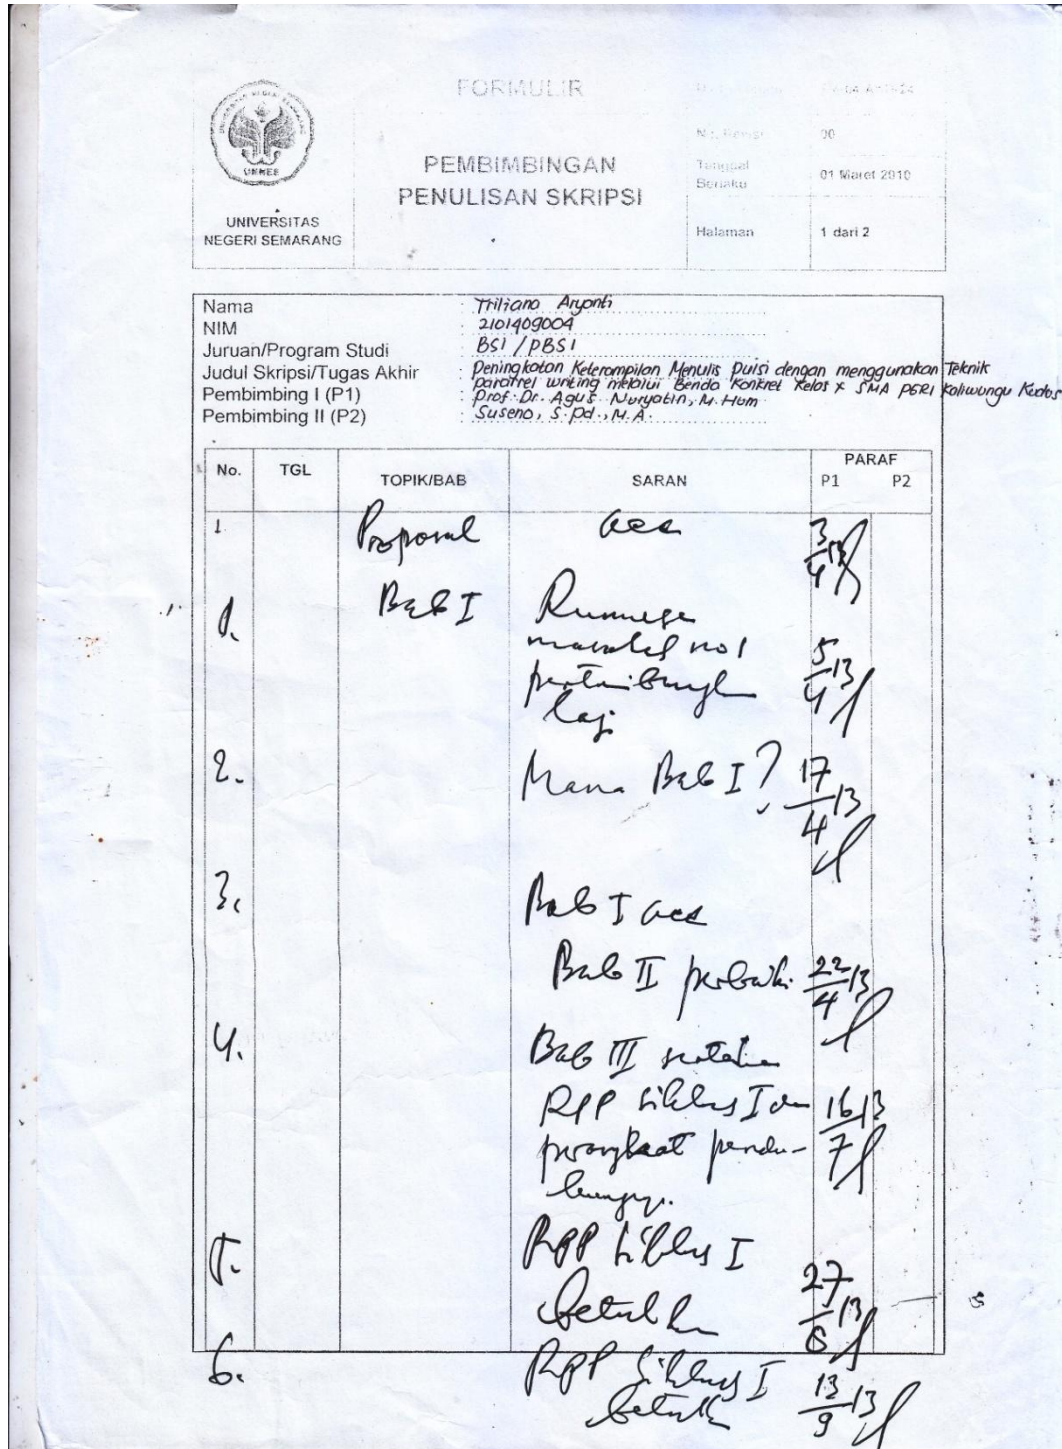 FORMULIR
No. Revisi 00
PEMBIMBINGAN
PENULISAN SKRIPSI
Tanggal
Berlaku
01 Maret 2010
UNNES
UNIVERSITAS
NEGERI SEMARANG
Halaman 1 dari 2
Nama : Triliana Aryanti
NIM : 2101409004
Juruan/Program Studi : BSI / PBSI
Judul Skripsi/Tugas Akhir : Peningkatan Keterampilan Menulis Puisi dengan menggunakan Teknik
writing melalui Benda Konkret Kelas X SMA PGRI Kaliwungu Kudus
Pembimbing I (P1) : Prof. Dr. Agus Nuryatin, M. Hum
Pembimbing II (P2) : Suseno, S. Pd., M. A.
No. TGL TOPIK/BAB SARAN PARAF
P1 P2
1. Proposal acc 3/4 13
1. Bab I Rumusan
masalah no 1
pertimbangkan
lagi 5/4 13
2. Mana Bab I? 17/4 13
3. Bab I acc
Bab II perbaiki 22/4 13
4. Bab III sertakan
RPP siklus I dan 16/7 13
perangkaat pendu-
kungnya.
5. RPP siklus I
betulkan 27/8 13
6. RPP siklus I
betulkan 13/9 13